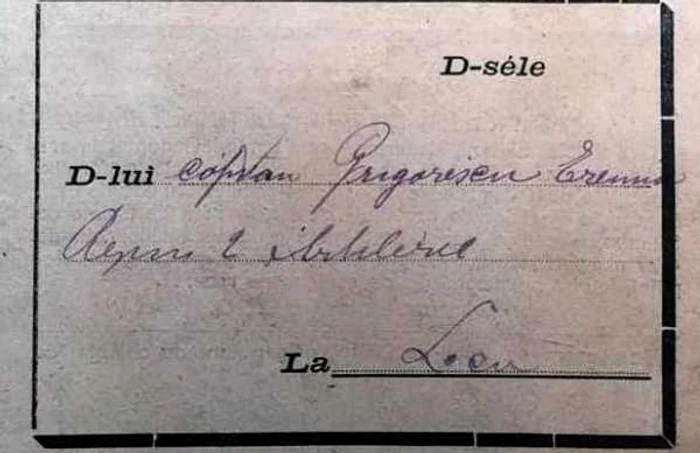 D-sėle
D-lui căpitan Grigorescu Eremia
Regim 2 Artilerie
La Locu